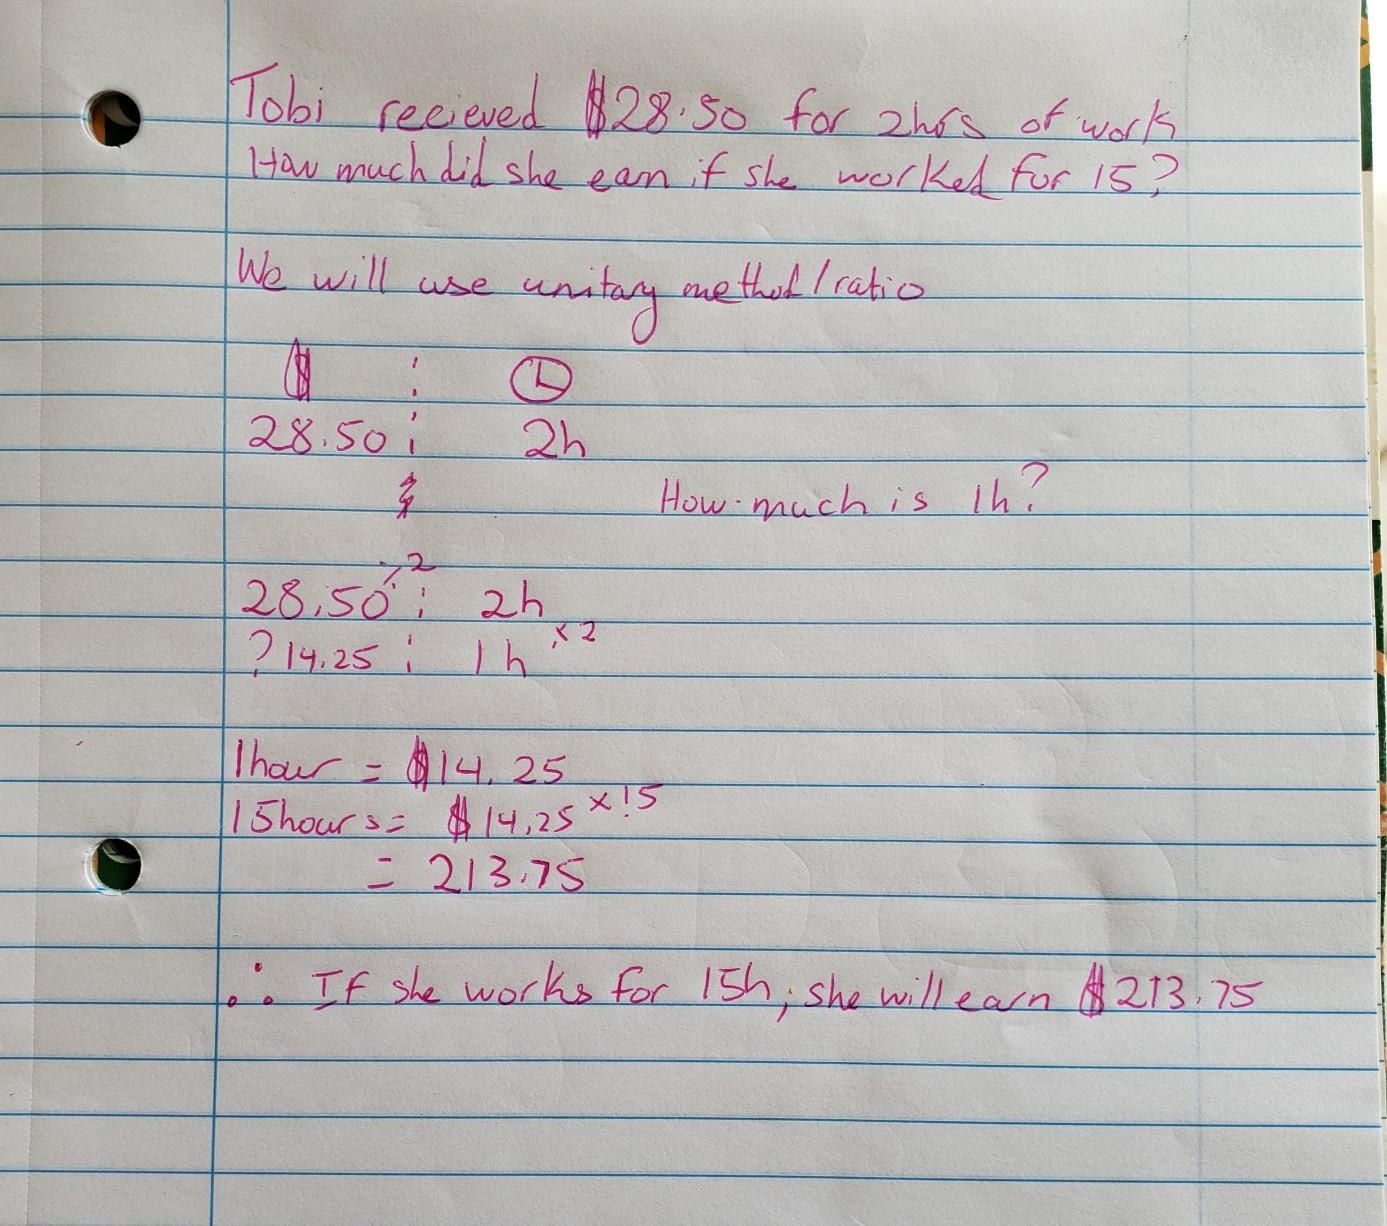 Tobi recieved $28.50 for 2hrs of work
How much did she earn if she worked for 15?
We will use unitary method/ratio
$ :
28.50 : 2h
How much is 1h?
÷2
28.50 : 2h
×2
? 14.25 : 1h
1hour = $14.25
15hours = $14.25 ×15
= 213.75
∴ If she works for 15h, she will earn $213.75